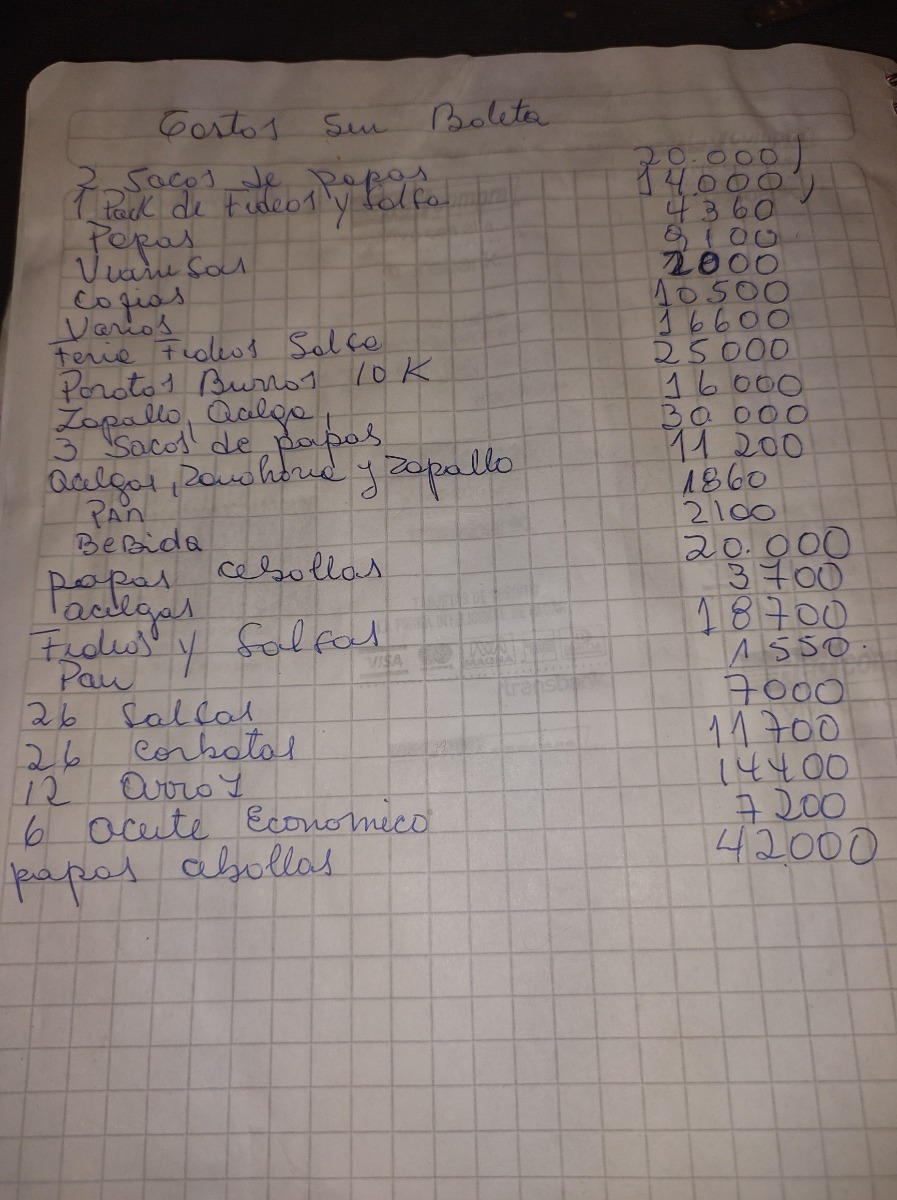 Gastos Sin Boleta
2 Sacos de papas 20.000
1 Pack de fideos y salsa 14.000
Papas 4360
9100
Copias 2000
Varios 10500
Feria Fideos Salsa 16600
Porotos Burros 10 K 25000
Zapallo, Acelga, 16000
3 Sacos de papas 30.000
Acelgas, zanahoria y zapallo 11200
PAN 1860
BeBida 2100
papas cebollas 20.000
acelgas 3700
Fideos y Salsas 18700
Pan 1550.
26 Salsas 7000
26 Corbatas 11700
12 Arroz 14400
6 aceite Economico 7200
papas cebollas 42000
VISA